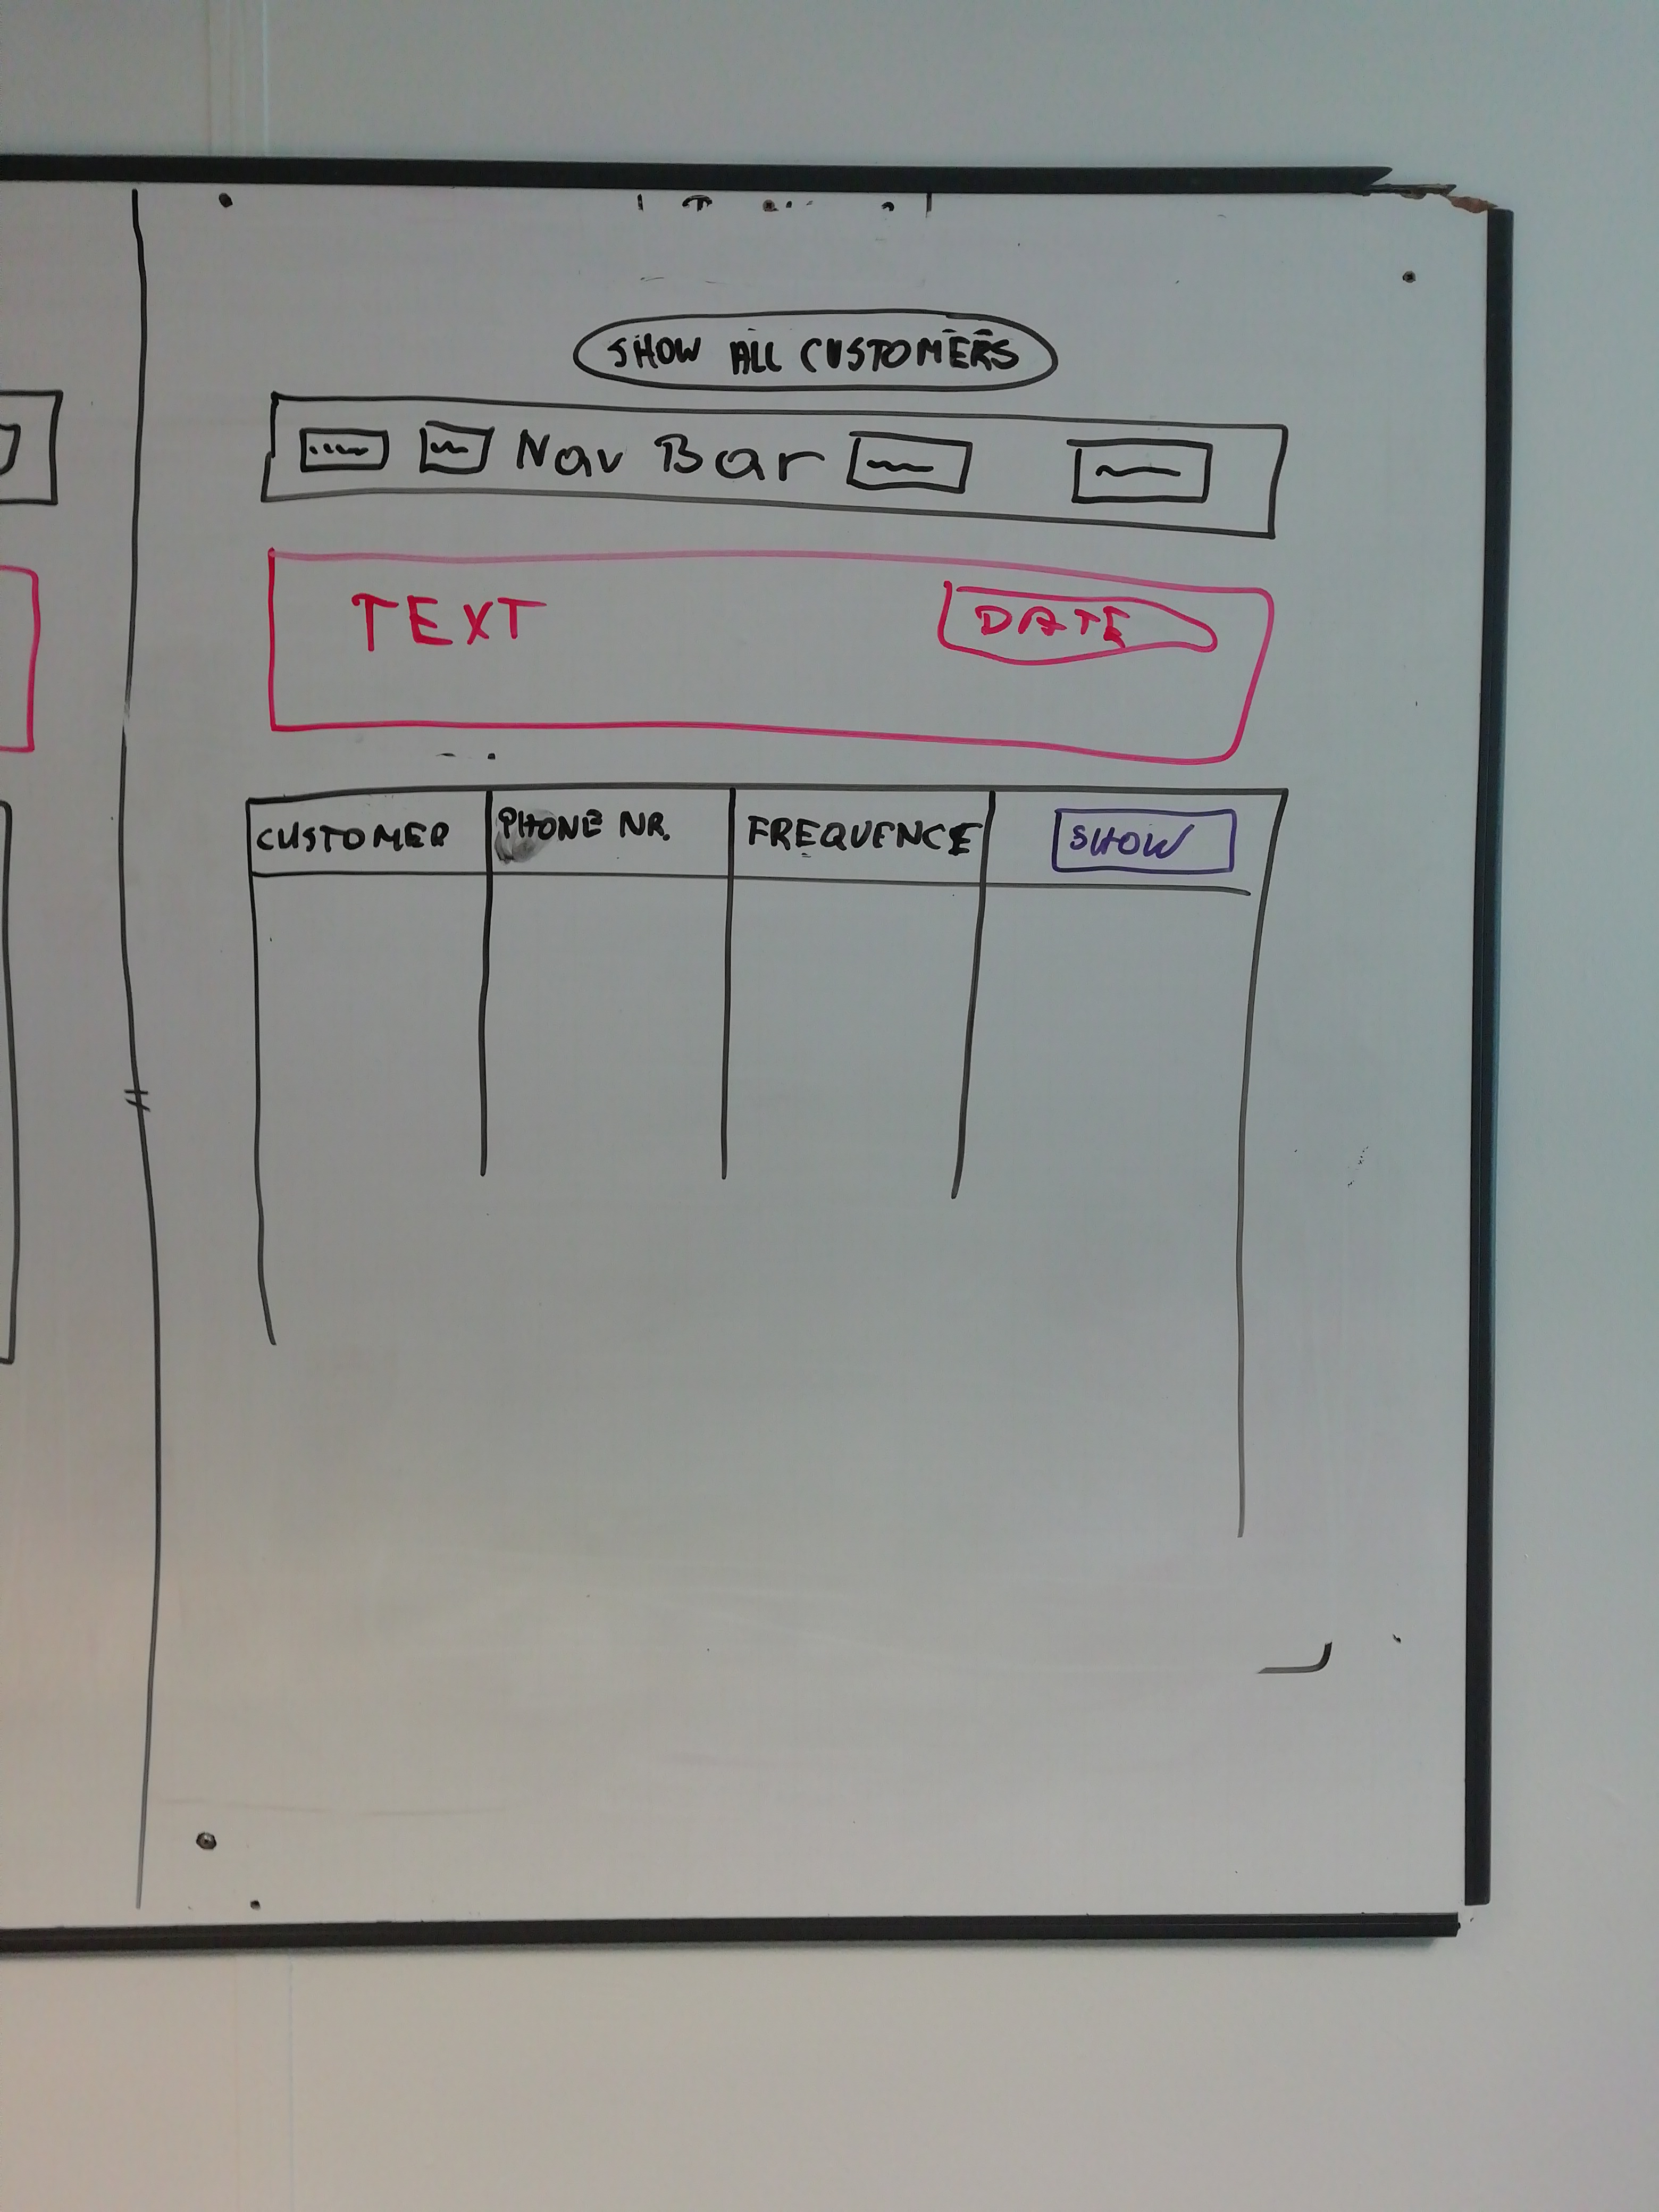 SHOW ALL CUSTOMERS
Nav Bar
TEXT DATE
CUSTOMER PHONE NR. FREQUENCE SHOW